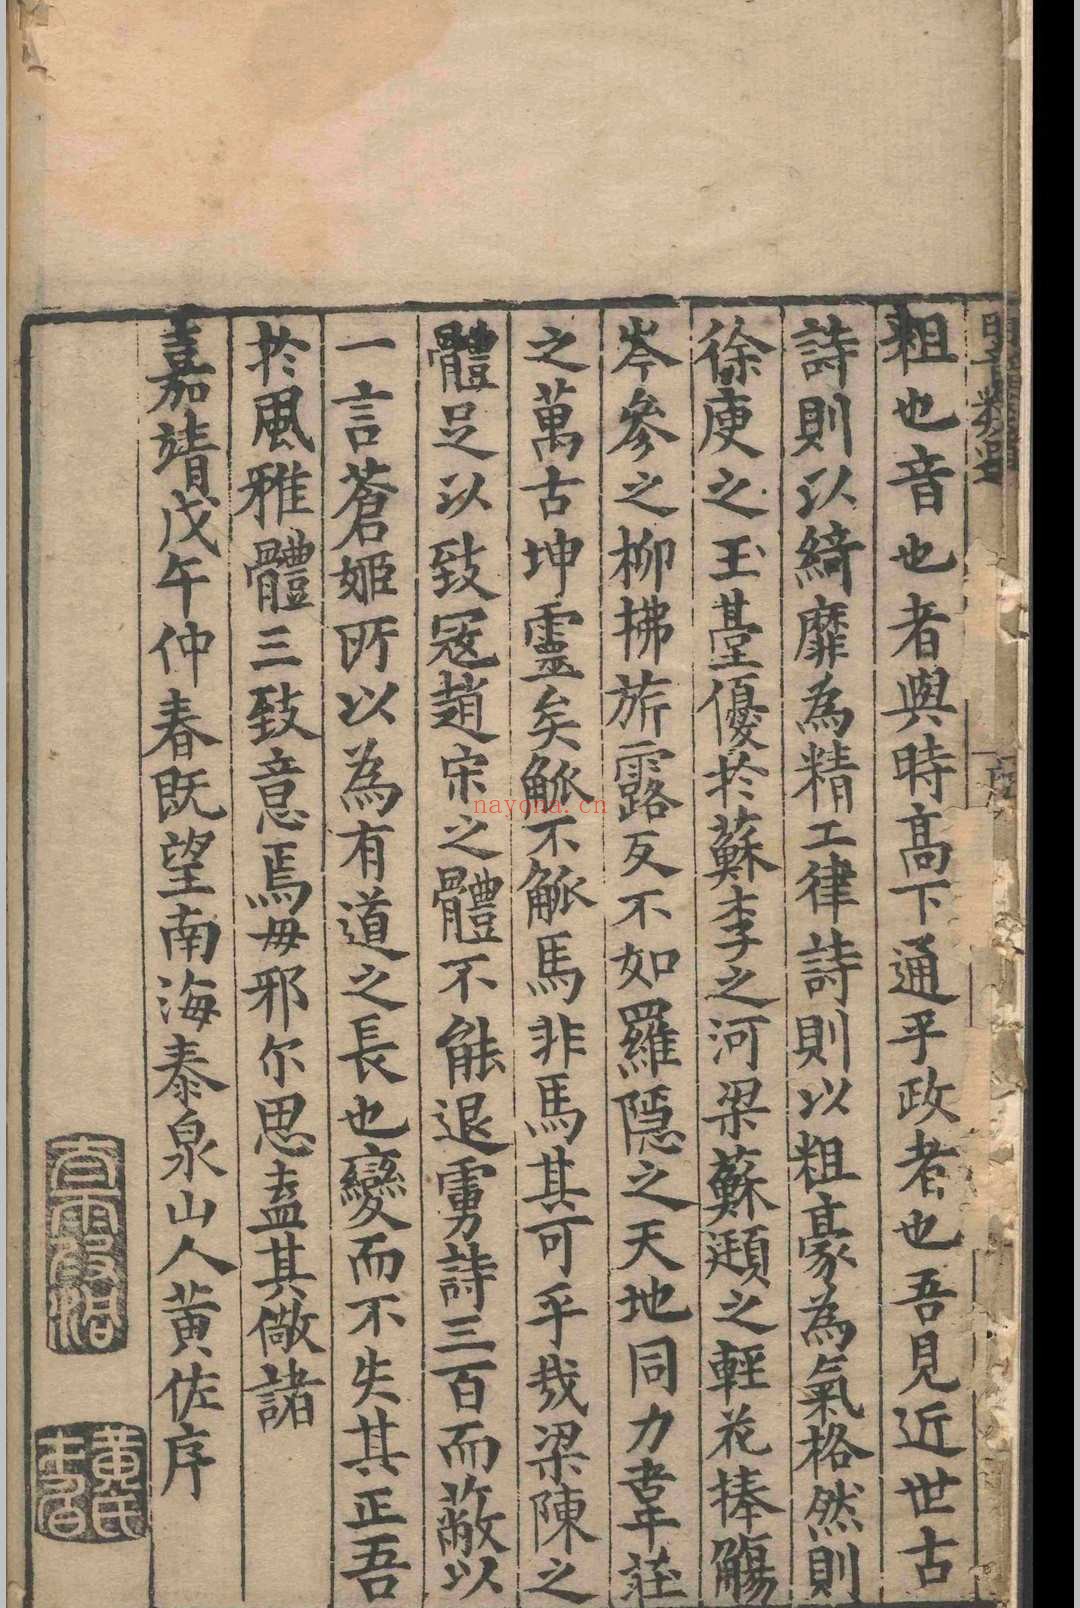 粗也音也者與時高下通乎政者也吾見近世古
詩則以綺靡為精工律詩則以粗豪為氣格然則
徐庾之玉臺優於蘇李之河梁蘇頲之輕花捧觴
岑參之柳拂旂露反不如羅隱之天地同力韋莊
之萬古坤靈矣觚不觚馬非馬其可乎哉梁陳之
體足以致寇趙宋之體不能退虜詩三百而蔽以
一言蒼姬所以為有道之長也變而不失其正吾
於風雅體三致意焉毋邪尔思盍其儆諸
嘉靖戊午仲春既望南海泰泉山人黃佐序
nayona.cn